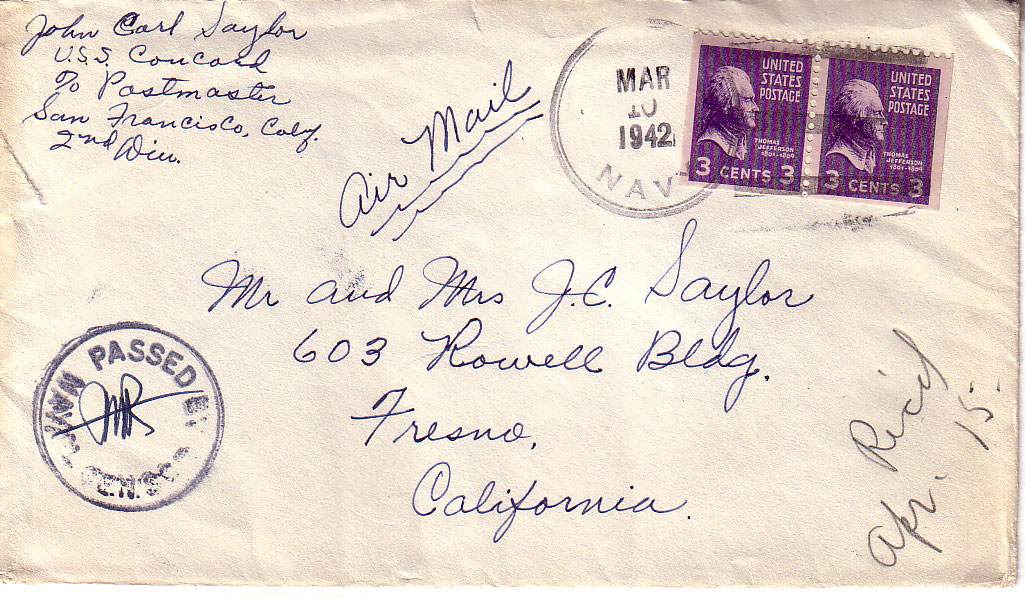 John Carl Saylor
U.S.S. Concord
% Postmaster
San Francisco, Calf.
2nd Div.
Air Mail
MAR
10
1942
NAV
UNITED
STATES
POSTAGE
THOMAS
JEFFERSON
1801-1809
3 CENTS 3
UNITED
STATES
POSTAGE
THOMAS
JEFFERSON
1801-1809
3 CENTS 3
Mr and Mrs J.C. Saylor
603 Rowell Bldg.
Fresno,
California.
PASSED BY
NAVAL CENSOR
Rec'd
Apr. 15.